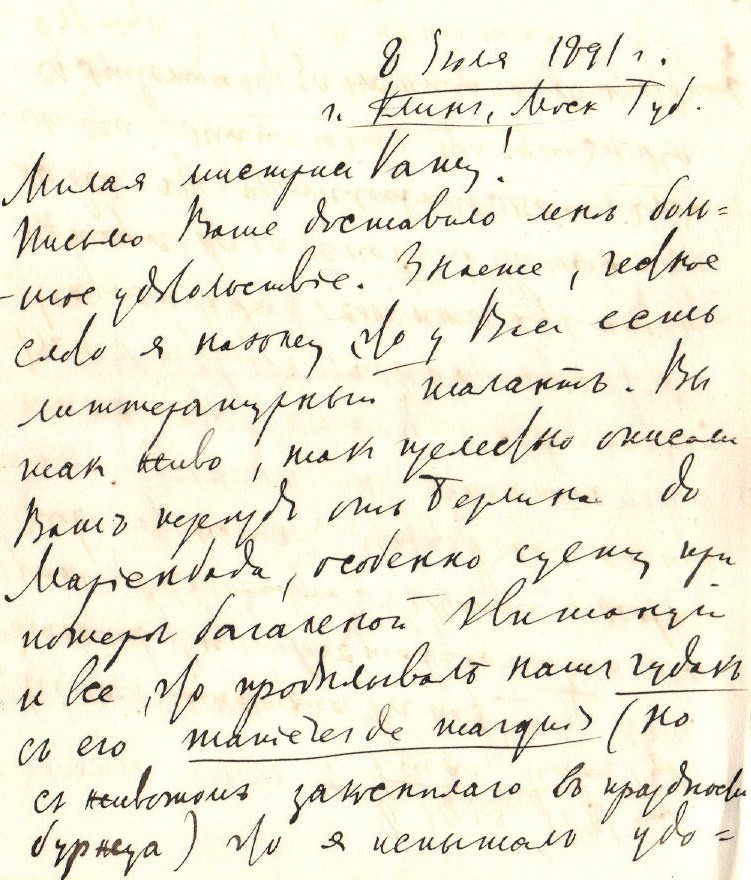 8 Июля 1891 г.
г. Клинъ, Моск Губ.
Милая мистриса Капец!
Письмо Ваше доставило мнѣ боль=
-шое удовольствіе. Знаете, честное
слово я нахожу что у Васъ есть
литтературный талантъ. Вы
такъ живо, такъ прелестно описали
Вашъ переѣздъ отъ Берлина до
Маріенбада, особенно сцену при
потерѣ багажной квитанціи
и все, что продѣлывалъ нашъ чудакъ
съ его manières de marquis (но
съ животомъ закоснѣлаго въ праздности
бурнеуа) что я испыталъ удо=